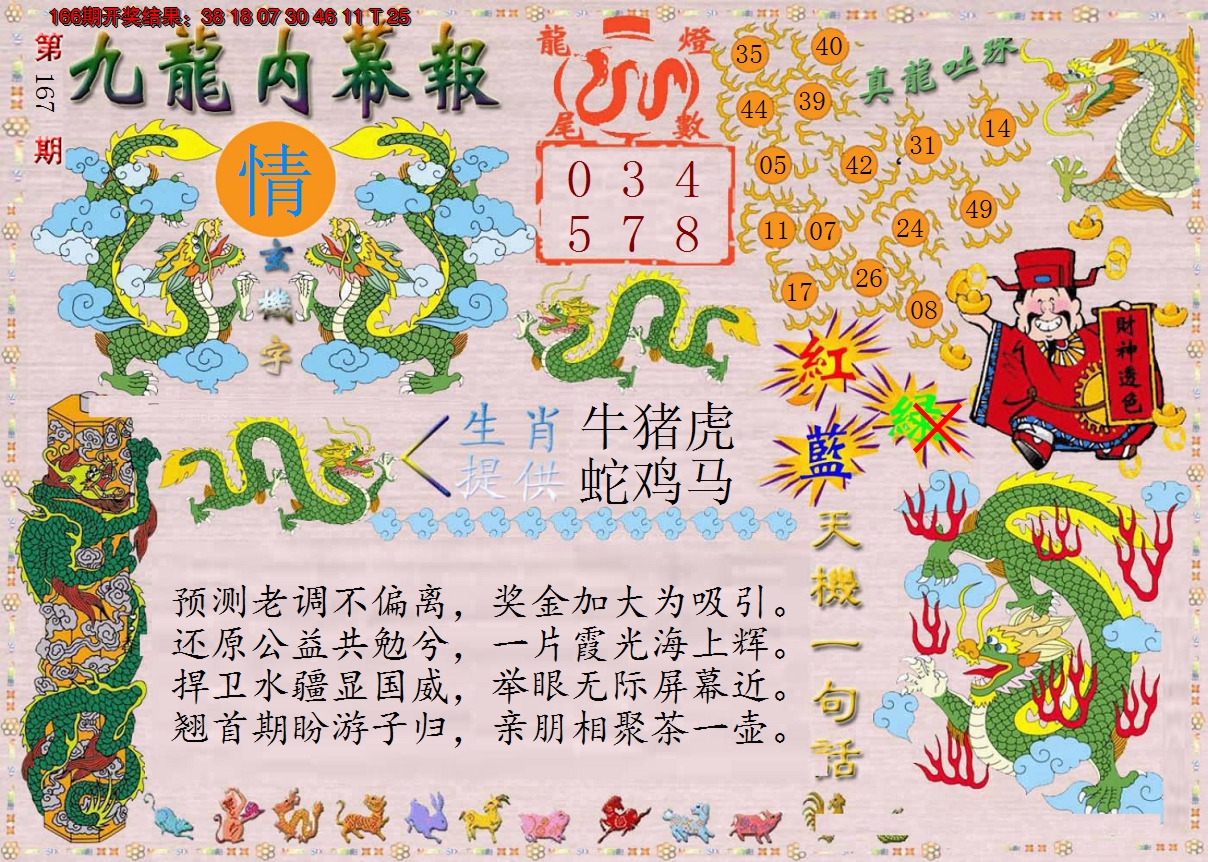 166期开奖结果：38 18 07 30 46 11 T 25
第167期
九龍内幕報
情
玄機字
龍燈
尾數
0 3 4
5 7 8
真龍吐珠
35
40
44
39
05
42
31
14
11
07
24
49
17
26
08
財神透色
紅
綠
藍
生肖
提供
牛猪虎
蛇鸡马
天機一句话
预测老调不偏离，奖金加大为吸引。
还原公益共勉兮，一片霞光海上辉。
捍卫水疆显国威，举眼无际屏幕近。
翘首期盼游子归，亲朋相聚茶一壶。